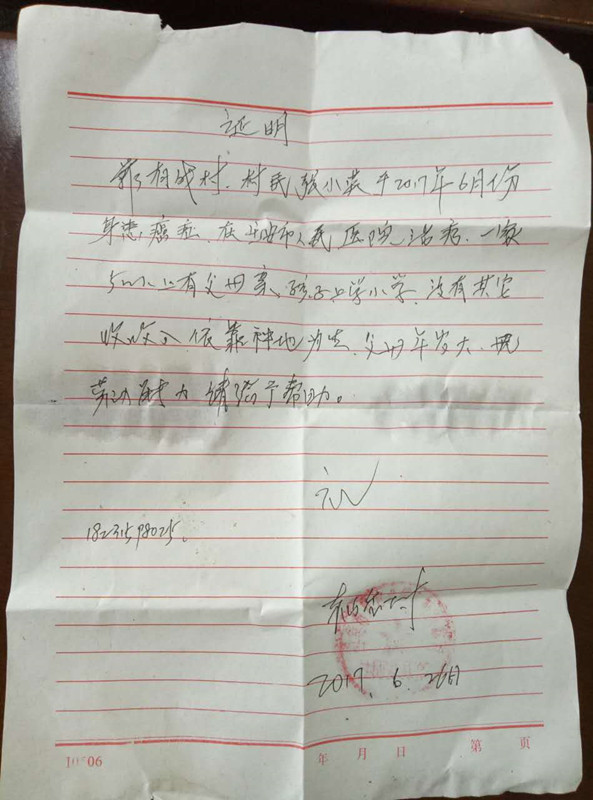 证明
村,村民张小英于2017年6月份
身患癌症,在市人民医院治病,一家
5口人上有父母亲,孩子上学小学,没有其它
收收入依靠种地为生,父母年岁大,无
劳动能力请给予帮助。
证
18231598025。
2017.6.26日
年 月 日 第 页
06